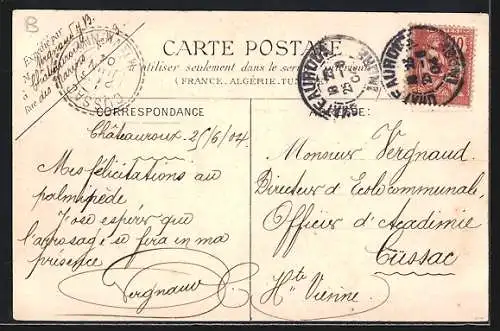 B
Expédié par
Vergnaud
à Châteauroux
Rue des Marins
CARTE POSTALE
à utiliser seulement dans le service
(FRANCE, ALGÉRIE,
CORRESPONDANCE
Châteauroux 25/6/04
Mes félicitations au
palmipède
J'ose espérer que
l'arrosage se fera en ma
présence
Vergnaud
Monsieur Vergnaud
Directeur d'Ecole communale,
Officier d'Académie
Cussac
Hte Vienne
CHATEAUROUX
INDRE
CHATEAUROUX
INDRE
10